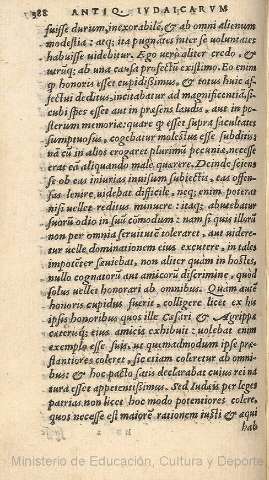 988 ANTIQ. IVDAICARVM
fuisse durum, inexorabilē, & ab omni alienum
modestia: atq; ita pugnātes inter se voluntates
habuisse uidebitur. Ego verò aliter credo, &
utrūq; ab una causa profectū existimo. Eo enim
ꝙ honoris esset cupidissimus, & totus huic af-
fectui deditus, incitabatur ad magnificentiā, si-
cubi spes esset aut in præsens laudis, aut in po-
sterum memoriæ: quare ꝙ esset supra facultates
sumptuosus, cogebatur molestus esse subditis:
nā cū in alios erogaret plurimū pecuniæ, necesse
erat eā aliquando malè quærere. Deinde sciens
se ob eas iniurias inuisum subiectis, eas offen-
sas lenire, uidebat difficile, neq; enim poterat
nisi uellet reditus minuere: itaq; abutebatur
suorū odio in suū cōmodum: nam si quis illorū
non per omnia seruitutē toleraret, aut uidere-
tur uelle dominationem eius excutere, in tales
impotēter sæuiebat, non aliter quàm in hostes,
nullo cognatorū aut amicorū discrimine, quod
solus uellet honorari ab omnibus. Quàm autē
honoris cupidus fuerit, colligere licet ex his
ipsis honoribus quos ille Cæsari & Agrippæ
cæterisq; eius amicis exhibuit: uolebat enim
exemplo esse suis, ut quemadmodum ipse præ-
stantiores coleret, sic etiam coleretur ab omni-
bus: & hoc pacto satis declarabat cuius rei na
tura esset appetentissimus. Sed Iudæis per leges
patrias non licet hoc modo potentiores colere,
quos necesse est maiorē rationem iusti & æqui
hab
Ministerio de Educación, Cultura y Deporte